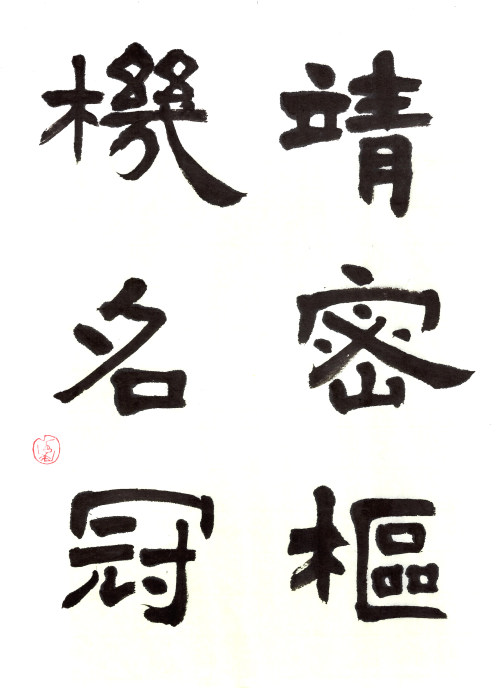 靖密樞
機名冠